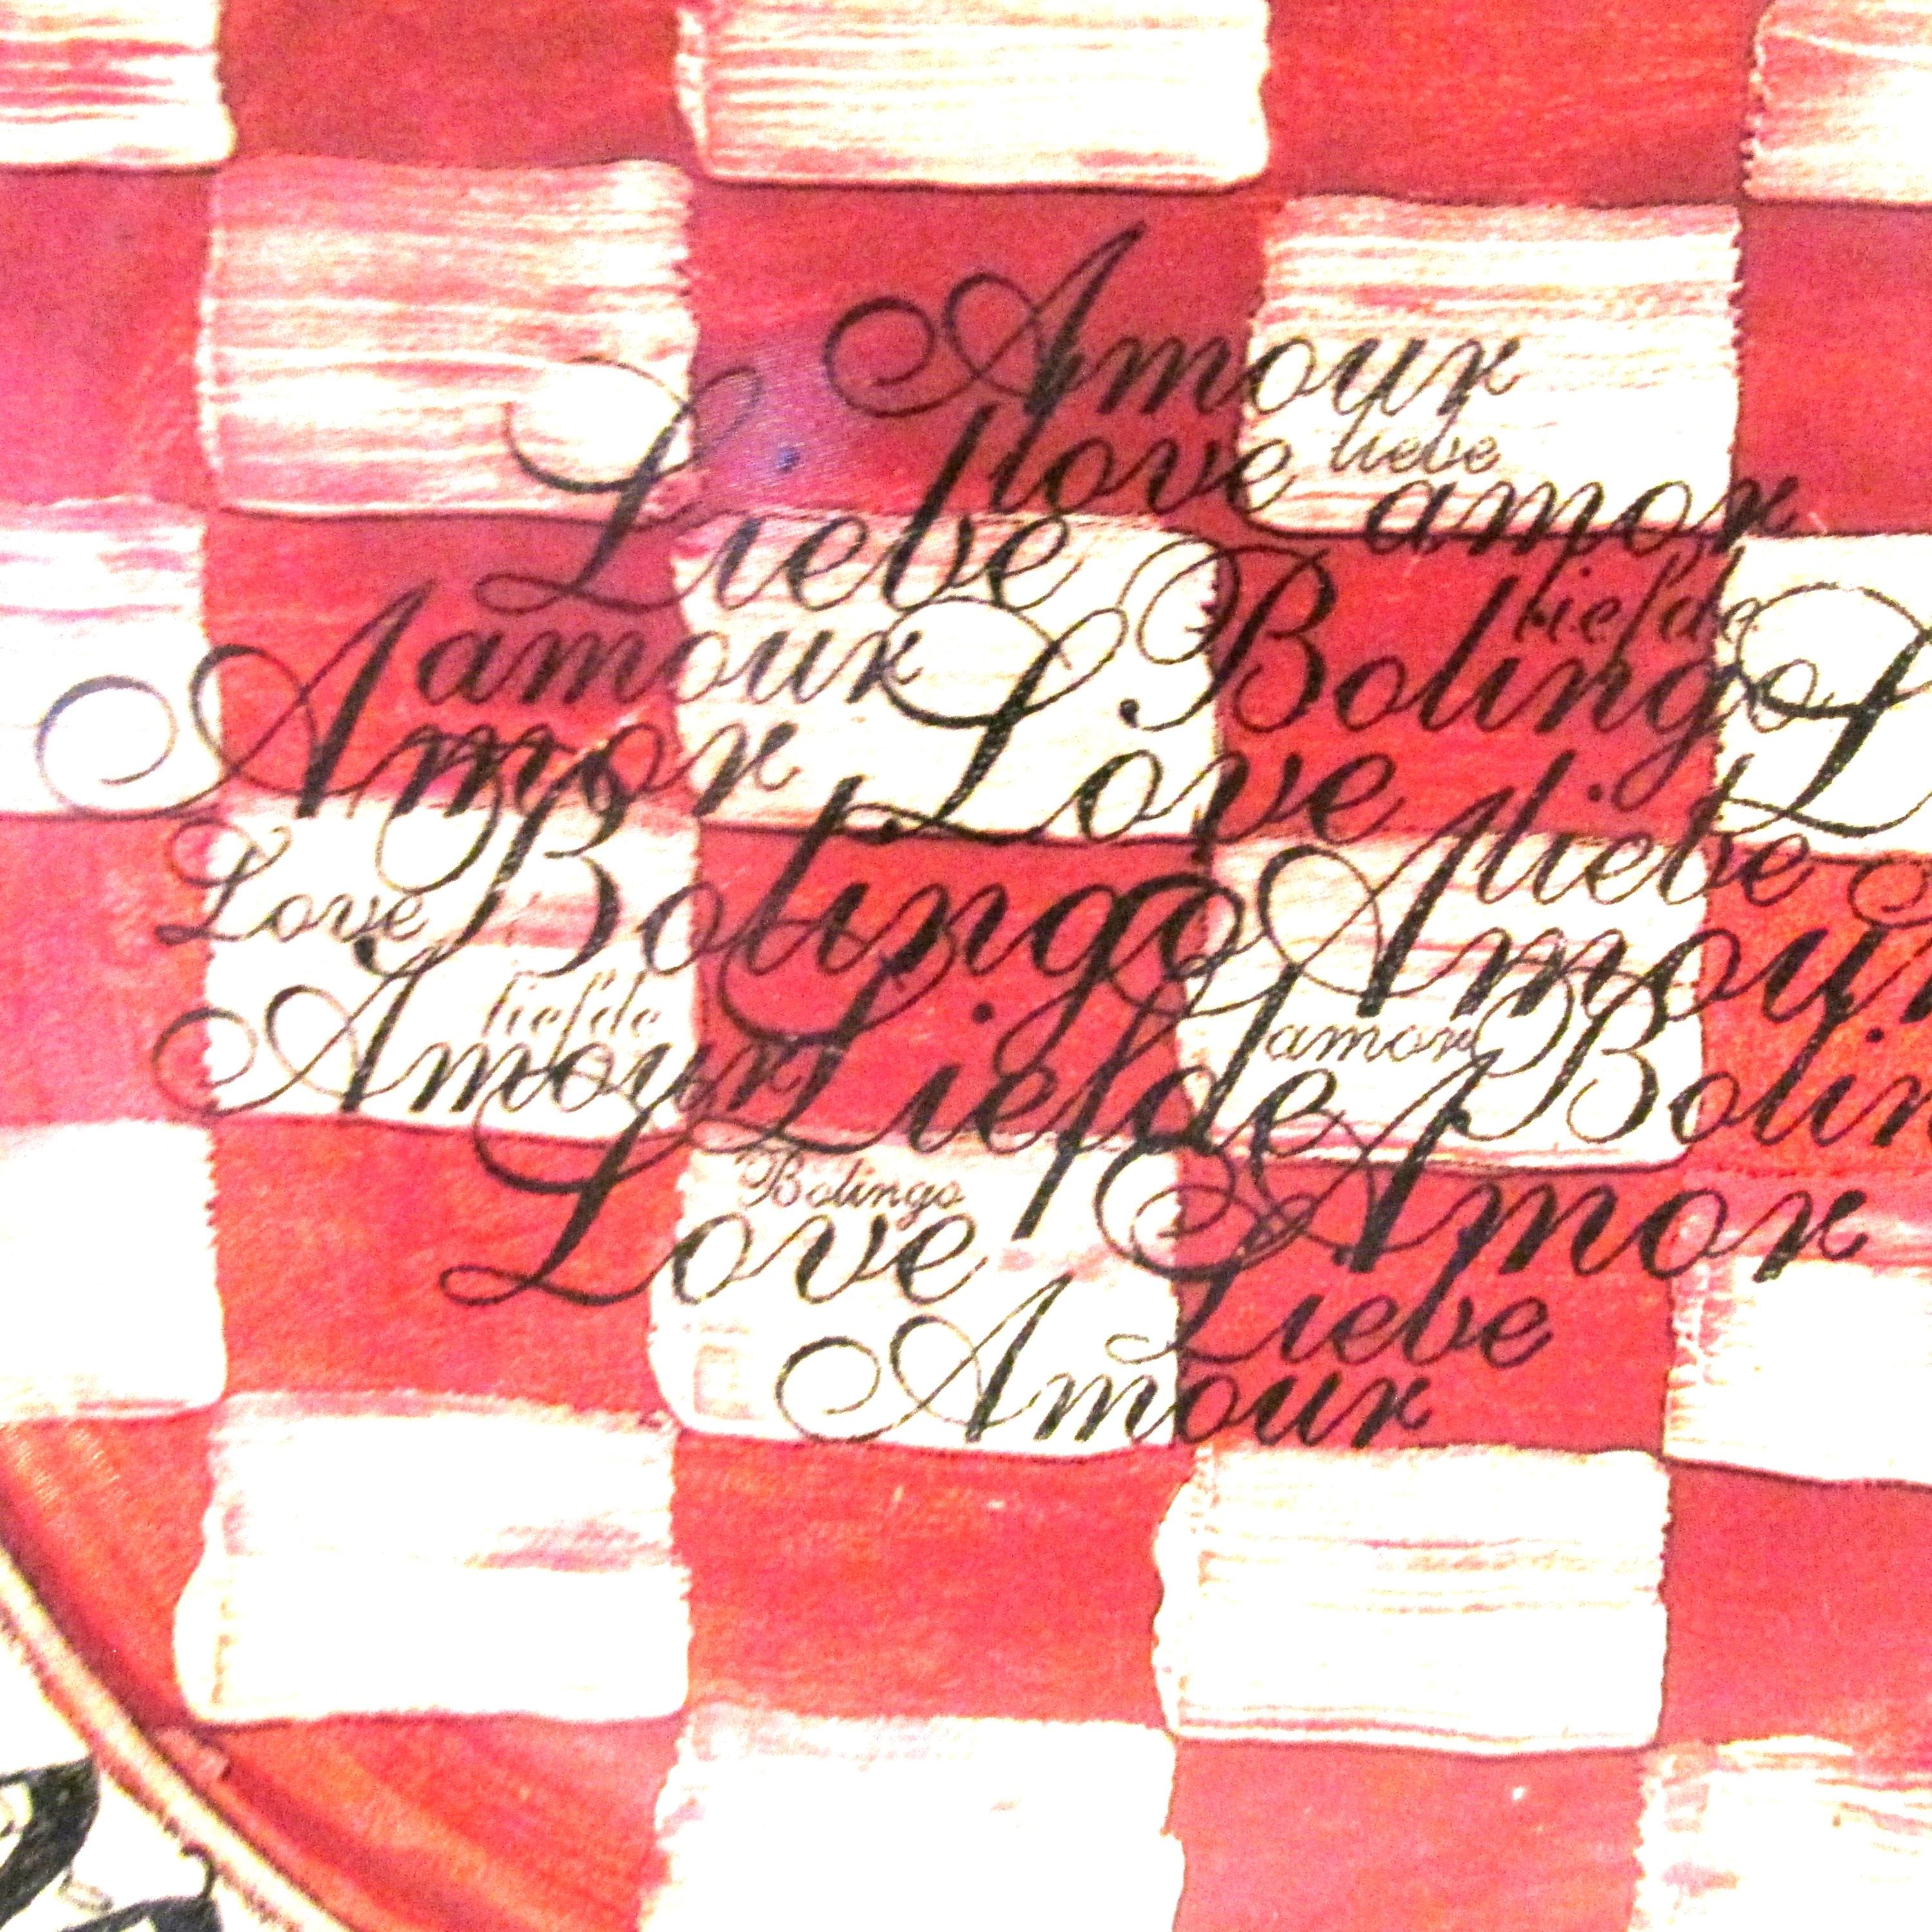 Amour
love lieve
Liebe amor
liefde
amour Bolingo
Amor Love
liebe
Love Bolingo Amour
liefde amor
Amour Liefde Bolin
Bolingo
Love Amor
Liebe
Amour